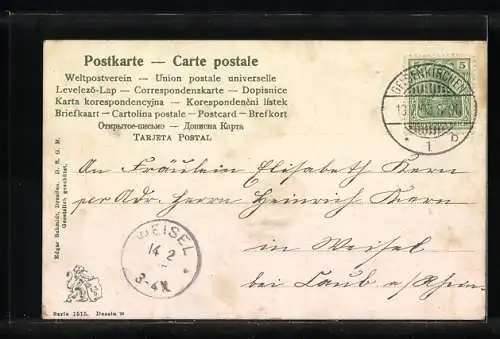 Postkarte — Carte postale
Weltpostverein — Union postale universelle
Levelező-Lap — Correspondenzkarte — Dopisnice
Karta korespondencyjna — Korespondenční lístek
Briefkaart — Cartolina postale — Postcard — Brefkort
Открытое письмо — Дописна Карта
TARJETA POSTAL
5 5
GELSENKIRCHEN
1 b
An Fräulein Elisabeth Kern
per Adr. Herrn Heinrich Kern
in Weisel
bei Caub a/Rhein.
WEISEL
14 2
3-4N
Edgar Schmidt, Dresden. D. R. G. M.
Gesetzlich geschützt.
Serie 1515. Dessin